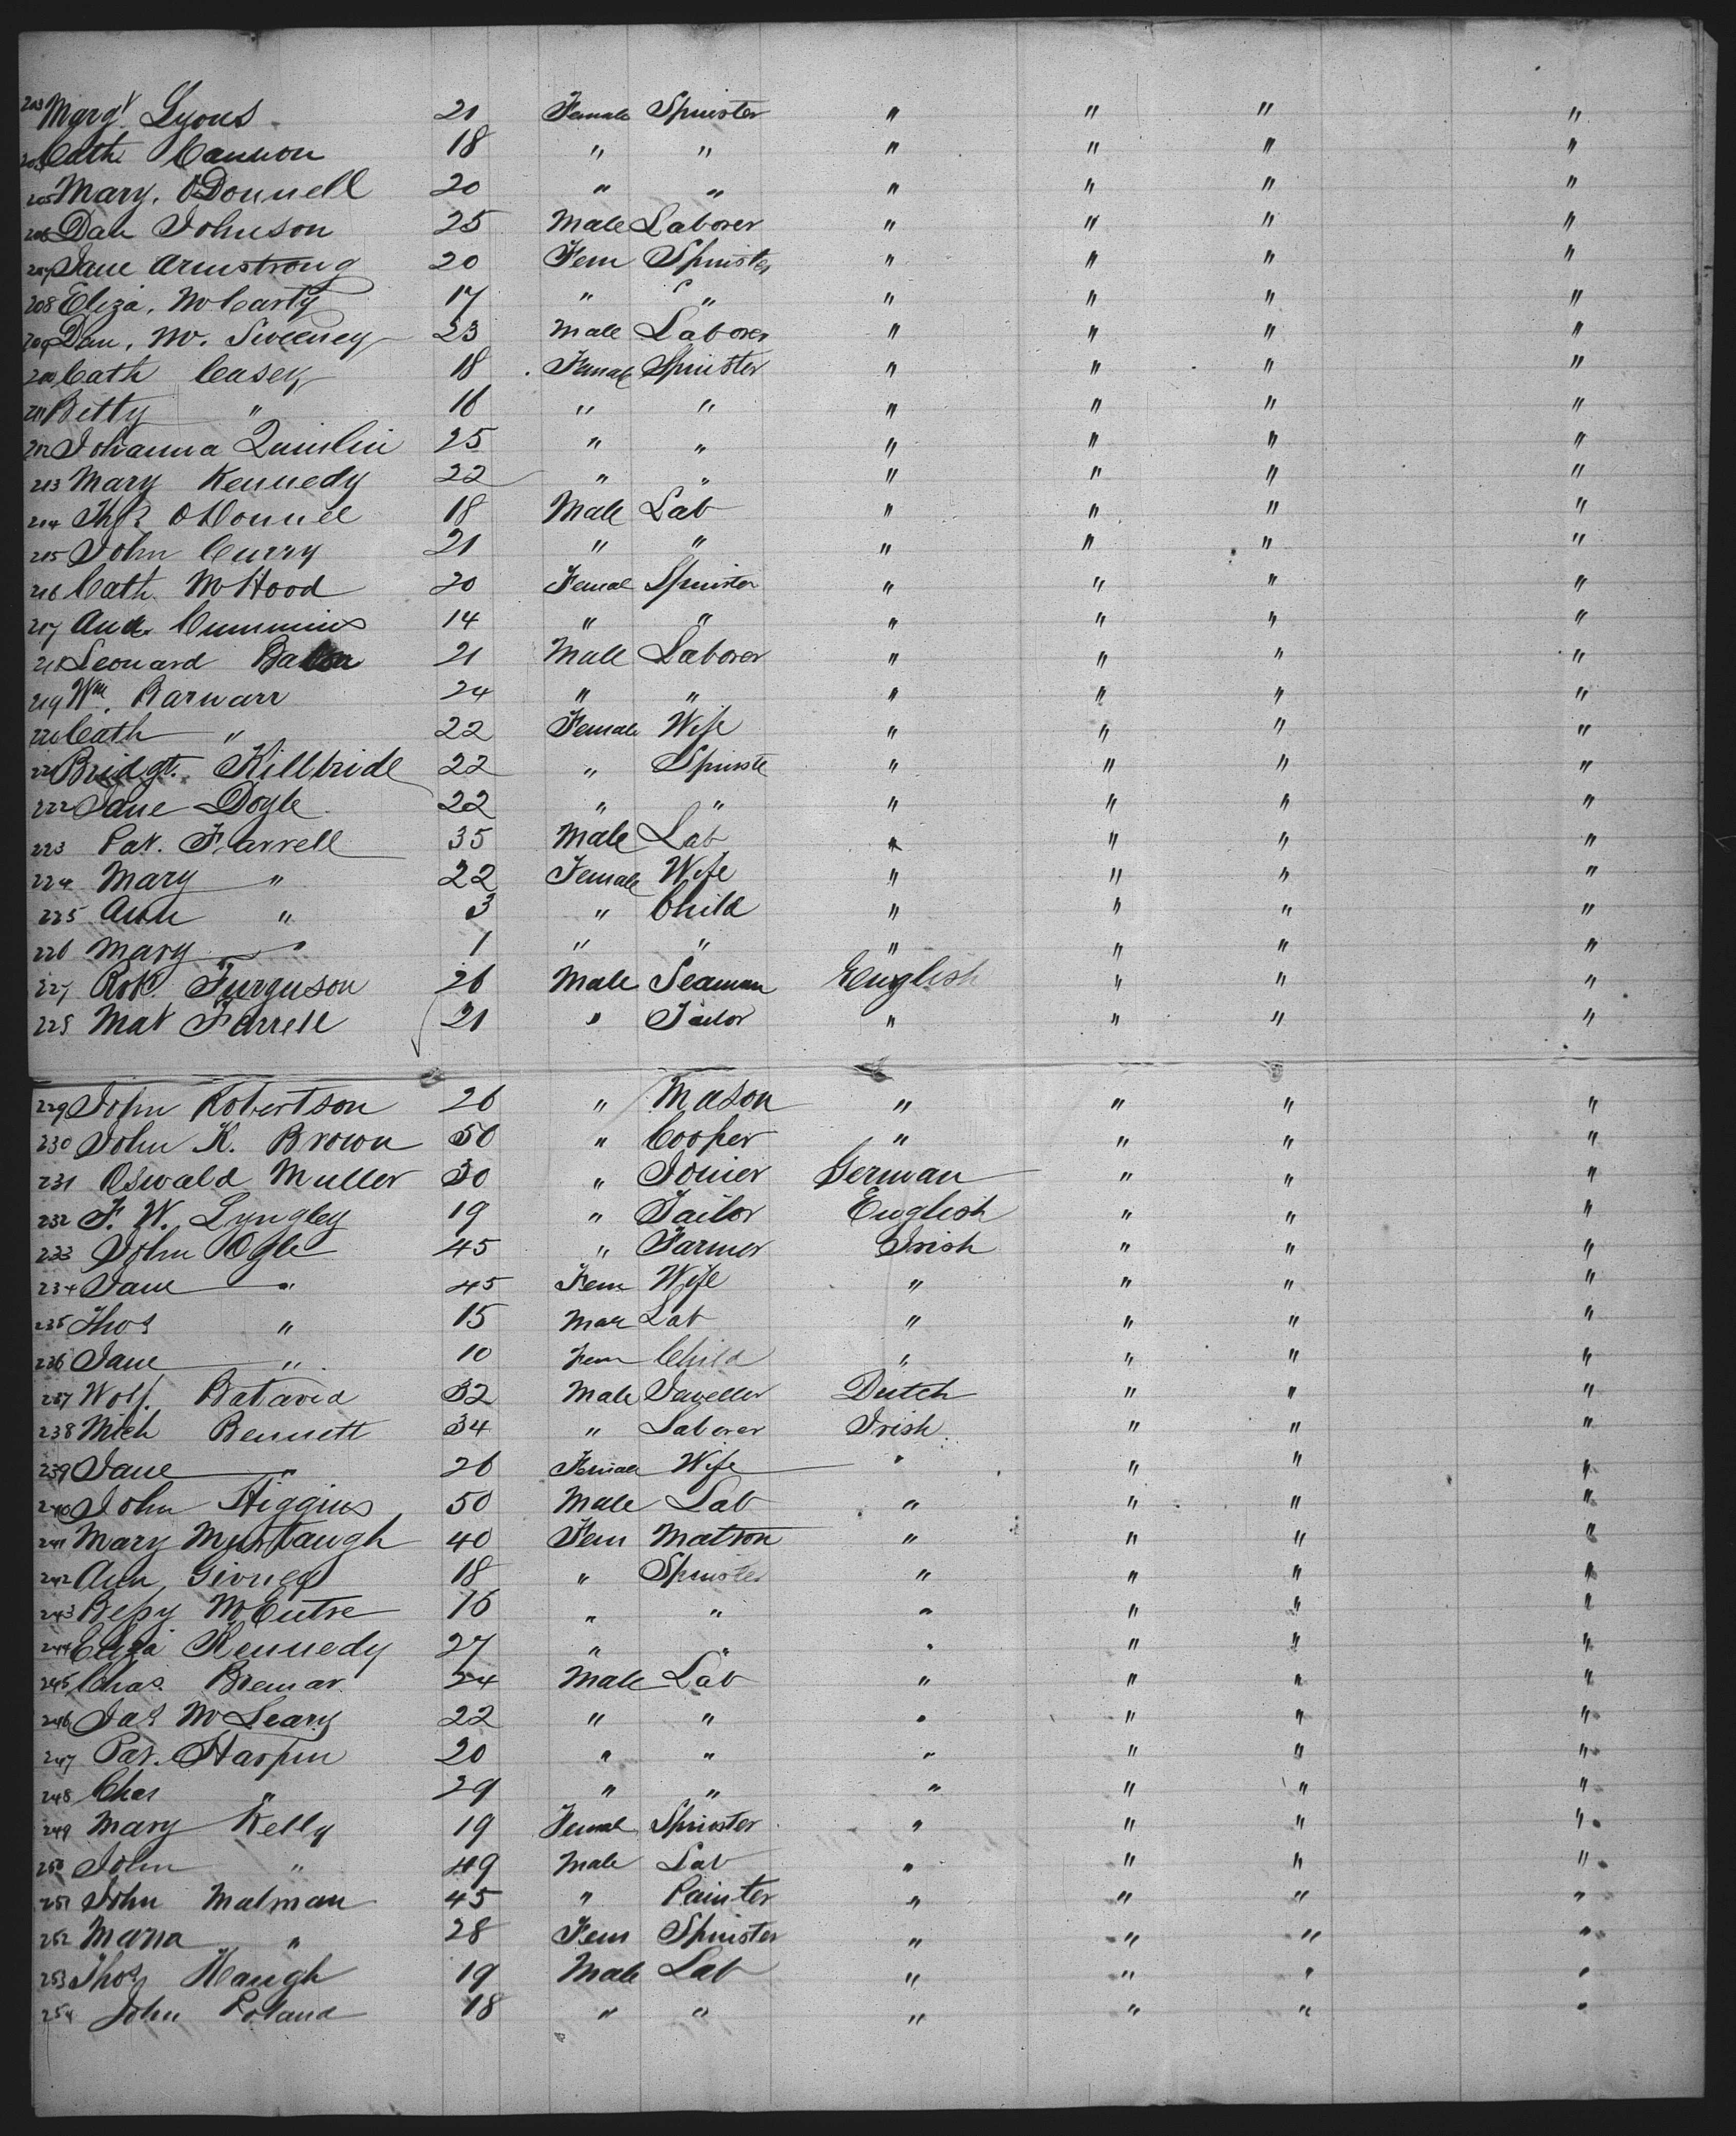 203 Margt Lyons 21 Female Spinster " " " "
204 Cath Cannon 18 " " " " " "
205 Mary. O'Donnell 20 " " " " " "
206 Dan Johnson 25 Male Laborer " " " "
207 Jane Armstrong 20 Fem Spinster " " " "
208 Eliza. McCarty 17 " " " " " "
209 Dan. Mc. Sweeney 23 Male Laborer " " " "
210 Cath Casey 18 Female Spinster " " " "
211 Betty " 16 " " " " " "
212 Johanna Quinlin 25 " " " " " "
213 Mary Kennedy 22 " " " " " "
214 Thos O'Donnel 18 Male Lab " " " "
215 John Curry 21 " " " " " "
216 Cath McHood 20 Femal Spinster " " " "
217 And. Cummins 14 " " " " " "
218 Leonard 21 Male Laborer " " " "
219 Wm. Barwarr 24 " " " " " "
220 Cath " 22 Female Wife " " " "
221 Bridgt. Killbride 22 " Spinste " " " "
222 Jane Doyle 22 " " " " " "
223 Pat. Farrell 35 Male Lab " " " "
224 Mary " 22 Female Wife " " " "
225 Ann " 3 " Child " " " "
226 Mary " 1 " " " " " "
227 Robt. Furguson 26 Male Seaman English " " "
228 Mat Farrell 21 " Tailor " " " "
229 John Robertson 26 " Mason " " " "
230 John K. Brown 50 " Cooper " " " "
231 Oswald Muller 30 " Joiner German " " "
232 F. W. Lyngley 19 " Tailor English " " "
233 John Ogle 45 " Farmer Irish " " "
234 Jane " 45 Fem Wife " " " "
235 Thos " 15 Mal Lab " " " "
236 Jane " 10 Fem Child " " " "
237 Wolf. Batavid 32 Male Jaweller Dutch " " "
238 Mich Bennett 34 " Laborer Irish " " "
239 Jane " 26 Female Wife " " " "
240 John Higgins 50 Male Lab " " " "
241 Mary Murtaugh 40 Fem Matron " " " "
242 Ann Givney 18 " Spinster " " " "
243 Bessy McEntre 16 " " " " " "
244 Eliza Kennedy 27 " " " " " "
245 Chas. Bremar 24 Male Lab " " " "
246 Jas McLeary 22 " " " " " "
247 Pat. Harpin 20 " " " " " "
248 Chas " 29 " " " " " "
249 Mary Kelly 19 Femal Spinster " " " "
250 John " 49 Male Lab " " " "
251 John Malman 45 " Painter " " " "
252 Maria " 28 Fem Spinster " " " "
253 Thos Haugh 19 Male Lab " " " "
254 John Poland 18 " " " " " "